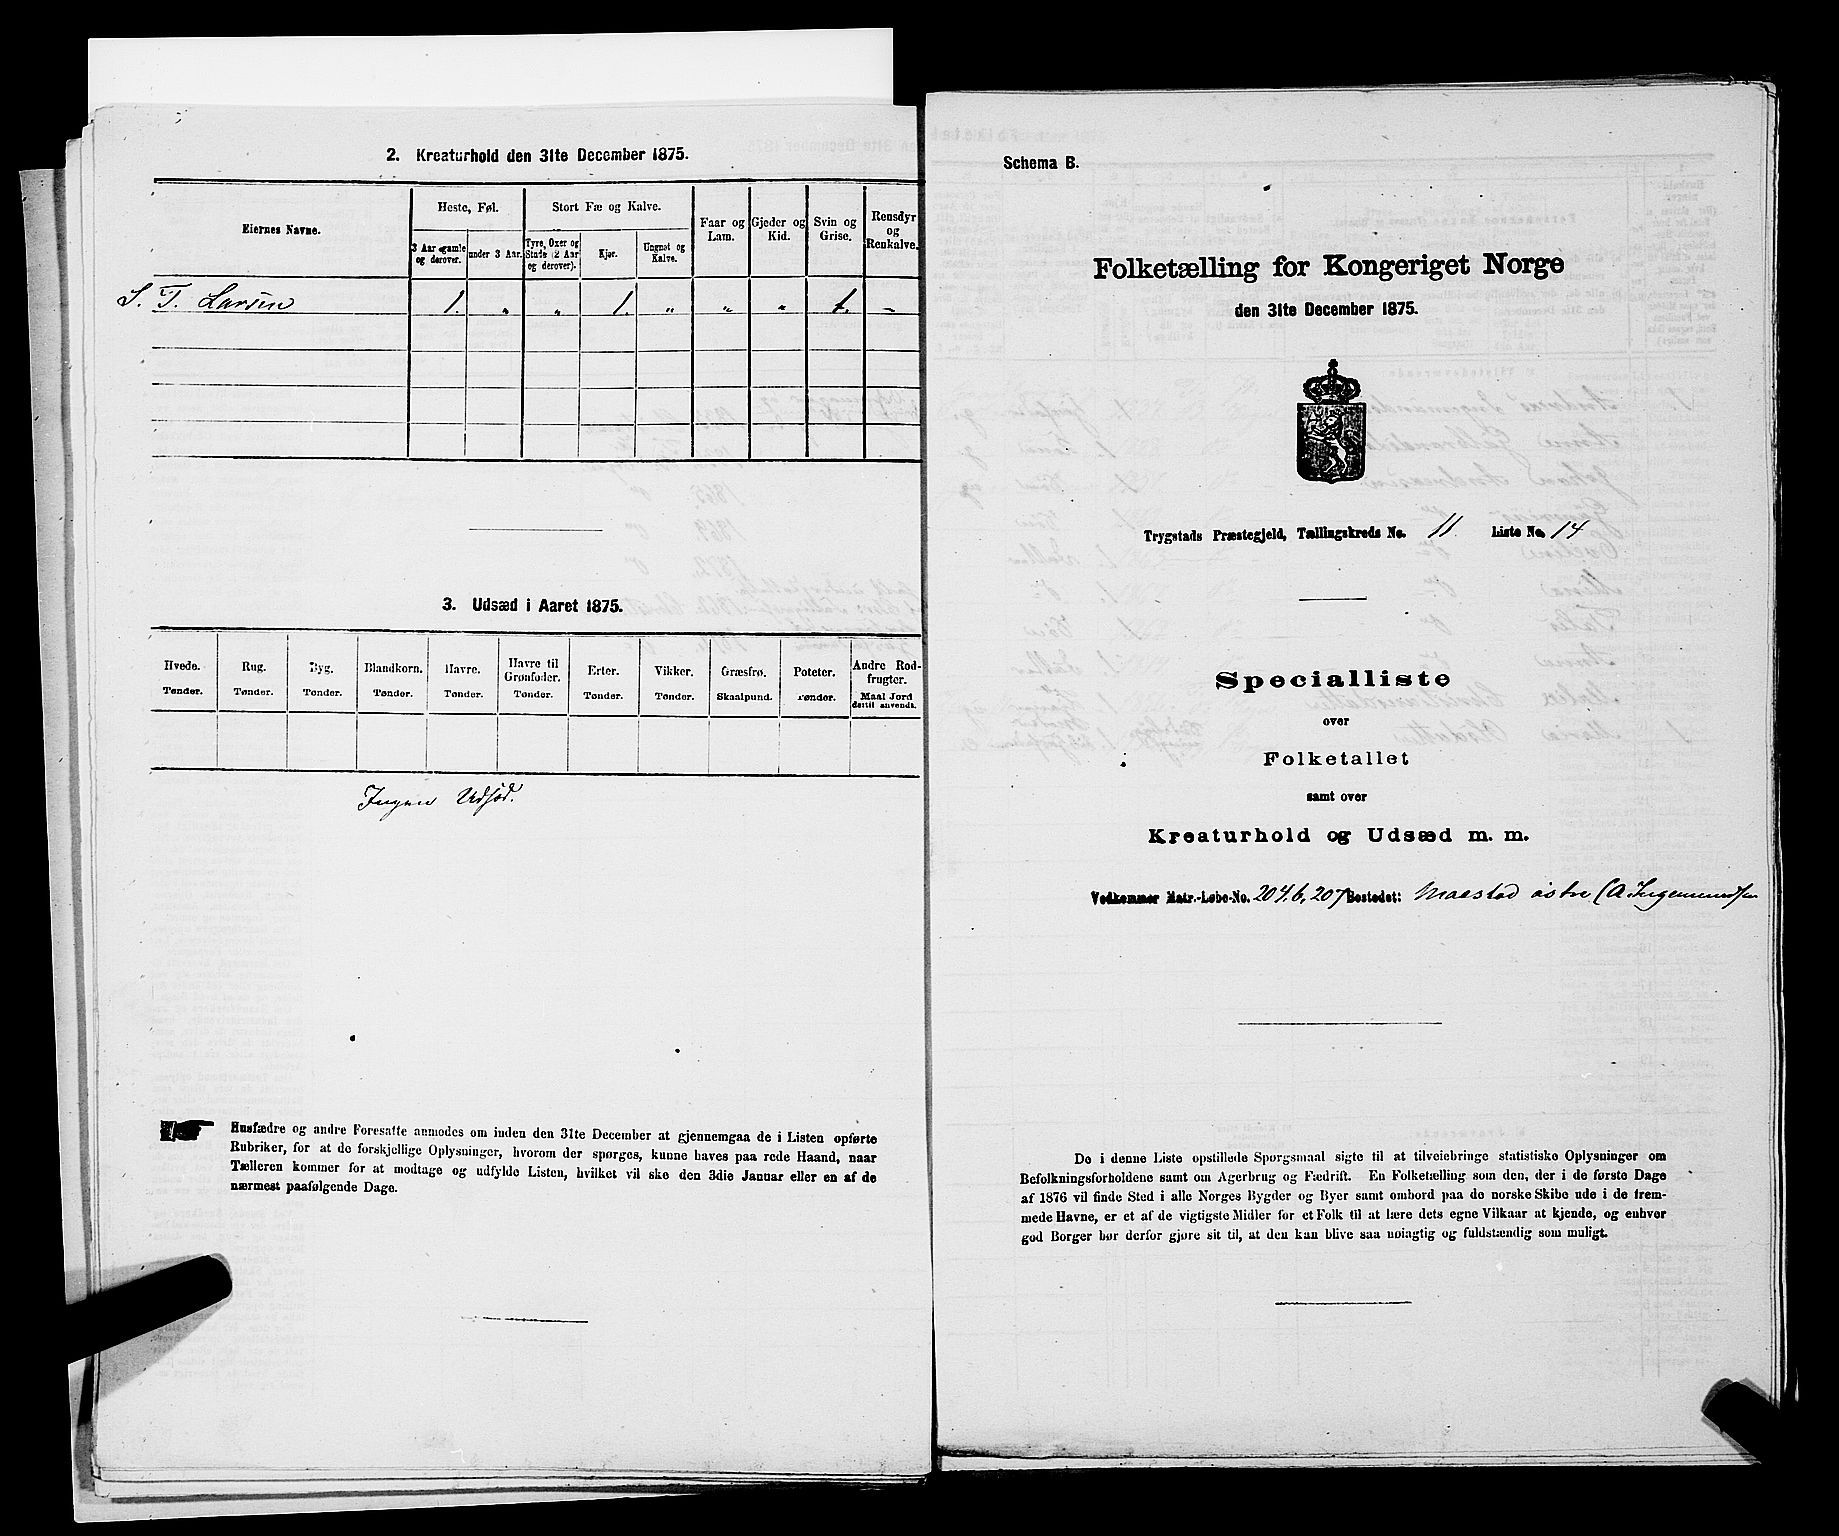 2. Kreaturhold den 31te December 1875.
Eiernes Navne.
Heste, Føl.
Stort Fæ og Kalve.
Faar og Lam.
Gjeder og Kid.
Svin og Grise.
Rensdyr og Renkalve.
3 Aar gamle og derover.
under 3 Aar.
Tyre, Oxer og Stude (2 Aar og derover).
Kjør.
Ungnøt og Kalve.
S. T. Larsen 1. „ „ 1. „ „ „ 1. –
3. Udsæd i Aaret 1875.
Hvede. Rug. Byg. Blandkorn. Havre. Havre til Grønfoder. Erter. Vikker. Græsfrø. Poteter. Andre Rodfrugter.
Tønder. Tønder. Tønder. Tønder. Tønder. Tønder. Tønder. Tønder. Skaalpund. Tønder. Maal Jord dertil anvendt.
Ingen Udsæd.
Husfædre og andre Foresatte anmodes om inden den 31te December at gjennemgaa de i Listen opførte
Rubriker, for at de forskjellige Oplysninger, hvorom der spørges, kunne haves paa rede Haand, naar
Tælleren kommer for at modtage og udfylde Listen, hvilket vil ske den 3die Januar eller en af de
nærmest paafølgende Dage.
Schema B.
Folketælling for Kongeriget Norge
den 31te December 1875.
Trygstads Præstegjeld, Tællingskreds No. 11. Liste No. 14
Specialliste
over
Folketallet
samt over
Kreaturhold og Udsæd m. m.
Vedkommer Matr.-Løbe-No. 204.b, 207 Bostedet: Maestad østre (A Ingemundsen
De i denne Liste opstillede Spørgsmaal sigte til at tilveiebringe statistiske Oplysninger om
Befolkningsforholdene samt om Agerbrug og Fædrift. En Folketælling som den, der i de første Dage
af 1876 vil finde Sted i alle Norges Bygder og Byer samt ombord paa de norske Skibe ude i de frem-
mede Havne, er et af de vigtigste Midler for et Folk til at lære dets egne Vilkaar at kjende, og enhver
god Borger bør derfor gjøre sit til, at den kan blive saa nøiagtig og fuldstændig som muligt.